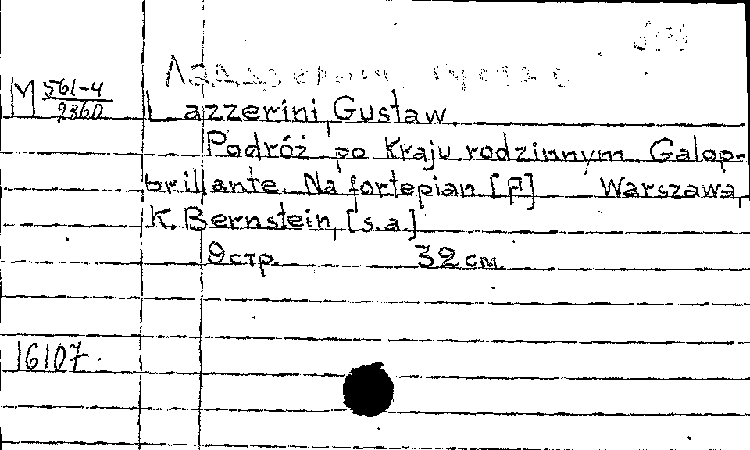 Лаццерини Густав
М 561-4
2860
Lazzerini, Gustaw.
Podróż po Kraju rodzinnym Galop-
brillante. Na fortepian [F] Warszawa,
K. Bernstein, [s.a.]
9 стр. 32 см.
16107.